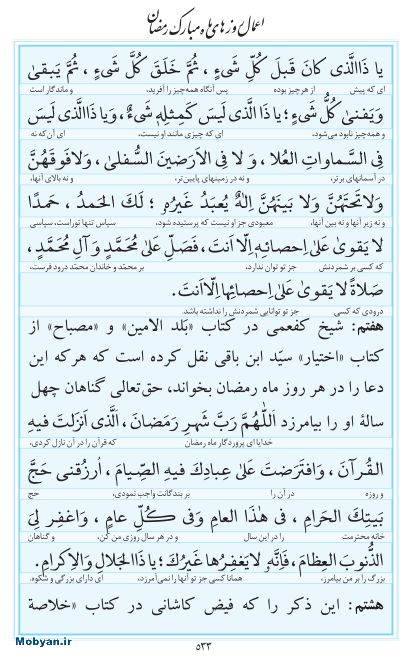 اعمال روزهای ماه مبارک رمضان
یا ذَاالَّذی کانَ قَبلَ کُلِّ شَیءٍ ، ثُمَّ خَلَقَ کُلَّ شَیءٍ ، ثُمَّ یَبقیٰ
ای که پیش از هر چیز بوده پس آنگاه همه‌چیز را آفرید، و ماندگار است
وَیَفنیٰ کُلُّ شَیءٍ؛ یا ذَا الَّذی لَیسَ کَمِثلِهِ شَیءٌ، وَیا ذَاالَّذی لَیسَ
و همه‌چیز نابود می‌شود، ای که چیزی مانند او نیست، ای آن‌که نه
فِی السَّماواتِ العُلا ، وَ لا فِی الاَرَضینَ السُّفلیٰ، وَلافَوقَهُنَّ
در آسمانهای برتر، و نه در زمینهای پایین‌تر، و نه بالای آنها،
وَلاتَحتَهُنَّ وَلا بَینَهُنَّ اِلٰهٌ یُعبَدُ غَیرُهُ ؛ لَکَ الحَمدُ ، حَمدًا
و نه زیر آنها و نه بین آنها، معبودی جز او نیست که پرستیده شود، سپاس تنها توراست، سپاسی
لا یَقویٰ عَلیٰ اِحصائِهِ اِلّا اَنتَ، فَصَلِّ عَلیٰ مُحَمَّدٍ وَ آلِ مُحَمَّدٍ ،
که کسی بر شمردنش جز تو توان ندارد، بر محمّد و خاندان محمّد درود فرست،
صَلاةً لا یَقویٰ عَلیٰ اِحصائِها اِلّا اَنتَ.
درودی که کسی جز تو توانایی شمردنش را نداشته باشد.
هفتم: شیخ کفعمی در کتاب «بَلَد الامین» و «مصباح» از
کتاب «اختیار» سیّد ابن باقی نقل کرده است که هرکه این
دعا را در هر روز ماه رمضان بخواند، حق‌تعالی گناهان چهل
سالهٔ او را بیامرزد اَللّٰهُمَّ رَبَّ شَهرِ رَمَضانَ ، اَلَّذی اَنزَلتَ فیهِ
خدایا ای پروردگار ماه رمضان که قرآن را در آن نازل کردی،
القُرآنَ ، وَافتَرَضتَ عَلیٰ عِبادِکَ فیهِ الصِّیامَ ، اُرزُقنی حَجَّ
و روزه را در آن بر بندگانت واجب نمودی، حج
بَیتِکَ الحَرامِ ، فی هٰذَا العامِ وَفی کُلِّ عامٍ ، وَاغفِر لِیَ
خانه محترمت را در این سال و در هر سال روزی من کن، و گناهان
الذُّنوبَ العِظامَ ، فَاِنَّهُ لایَغفِرُها غَیرُکَ؛ یا ذَا الجَلالِ وَالاِکرامِ.
بزرگ را بر من بیامرز، همانا کسی جز تو آنها را نمی‌آمرزد، ای دارای بزرگی و شکوه.
هشتم: این ذکر را که فیض کاشانی در کتاب «خلاصة
Mobyan.ir
۵۳۳